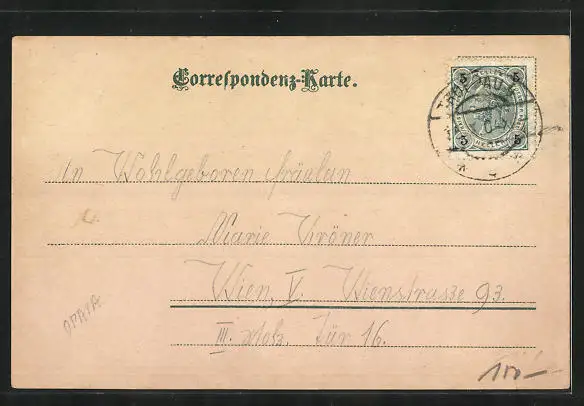 Correspondenz-Karte.
5 5
5 5
An Wohlgeboren Fräulein
Marie Kröner
Wien, V. Wienstrasze 93.
III. Stock. Tür 16.
OPAVA